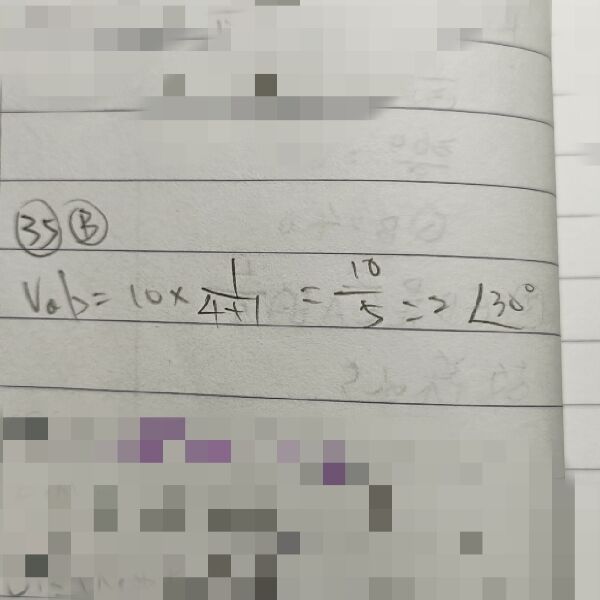 ㉟ Ⓑ
Vab = 10 × 1/(4+1) = 10/5 = 2 ∠30°